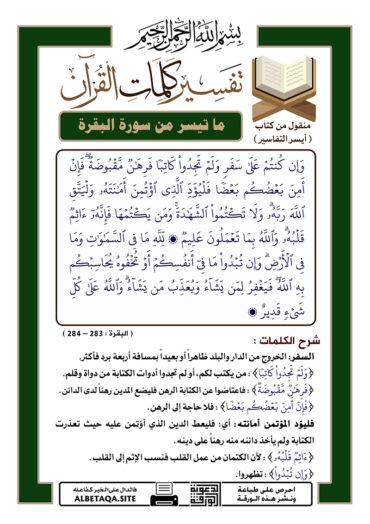 بِسْمِ اللَّهِ الرَّحْمَنِ الرَّحِيمِ
تفسير كلمات القرآن
ما تيسر من سورة البقرة
منقول من كتاب
( أيسر التفاسير )
وَإِن كُنتُمْ عَلَىٰ سَفَرٍ وَلَمْ تَجِدُوا۟ كَاتِبًا فَرِهَـٰنٌ مَّقْبُوضَةٌ ۖ فَإِنْ
أَمِنَ بَعْضُكُم بَعْضًا فَلْيُؤَدِّ ٱلَّذِى ٱؤْتُمِنَ أَمَـٰنَتَهُۥ وَلْيَتَّقِ
ٱللَّهَ رَبَّهُۥ ۗ وَلَا تَكْتُمُوا۟ ٱلشَّهَـٰدَةَ ۚ وَمَن يَكْتُمْهَا فَإِنَّهُۥٓ ءَاثِمٌ
قَلْبُهُۥ ۗ وَٱللَّهُ بِمَا تَعْمَلُونَ عَلِيمٌ ۝ لِّلَّهِ مَا فِى ٱلسَّمَـٰوَٰتِ وَمَا
فِى ٱلْأَرْضِ ۗ وَإِن تُبْدُوا۟ مَا فِىٓ أَنفُسِكُمْ أَوْ تُخْفُوهُ يُحَاسِبْكُم
بِهِ ٱللَّهُ ۖ فَيَغْفِرُ لِمَن يَشَآءُ وَيُعَذِّبُ مَن يَشَآءُ ۗ وَٱللَّهُ عَلَىٰ كُلِّ
شَىْءٍ قَدِيرٌ ۝
( البقرة : 283 - 284 )
شرح الكلمات :
السفر: الخروج من الدار والبلد ظاهراً أو بعيداً بمسافة أربعة برد فأكثر.
﴿وَلَمْ تَجِدُوا۟ كَاتِبًا﴾ : من يكتب لكم، أو لم تجدوا أدوات الكتابة من دواة وقلم.
﴿فَرِهَـٰنٌ مَّقْبُوضَةٌ﴾ : فاعتاضوا عن الكتابة الرهن فليضع المدين رهناً لدى الدائن.
﴿فَإِنْ أَمِنَ بَعْضُكُم بَعْضًا﴾ : فلا حاجة إلى الرهن.
فليؤد المؤتمن أمانته: أي: فليعط الدين الذي أؤتمن عليه حيث تعذرت
الكتابة ولم يأخذ دائنه منه رهناً على دينه.
﴿ءَاثِمٌ قَلْبُهُۥ﴾ : لأن الكتمان من عمل القلب فنسب الإثم إلى القلب.
﴿وَإِن تُبْدُوا۟﴾ : تظهروا.
احرص على طباعة
ونشر هذه الورقة
الورقة
الدعوية
فالدال على الخير كفاعله
ALBETAQA.SITE